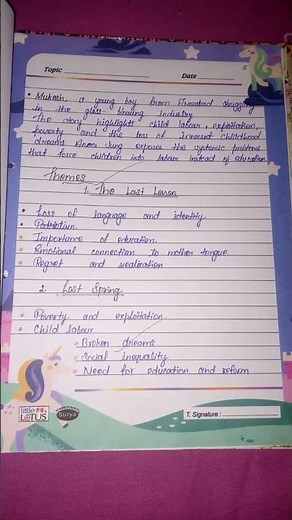 Topic
Date
• Mukesh, a young boy from Firozabad struggling
in the glass-blowing industry
The story highlights child labour, exploitation,
poverty and the loss of innocent childhood
dreams Anees Jung exposes the systemic problems
that force children into labour instead of education
Themes
1. The Last Lesson
• Loss of language and identity
• Patriotism.
• Importance of education.
• Emotional connection to mother tongue.
• Regret and realization
2. Lost Spring
• Poverty and exploitation
• Child labour
• Broken dreams
• Social inequality
• Need for education and reform
little LOTUS
Surya
T. Signature :